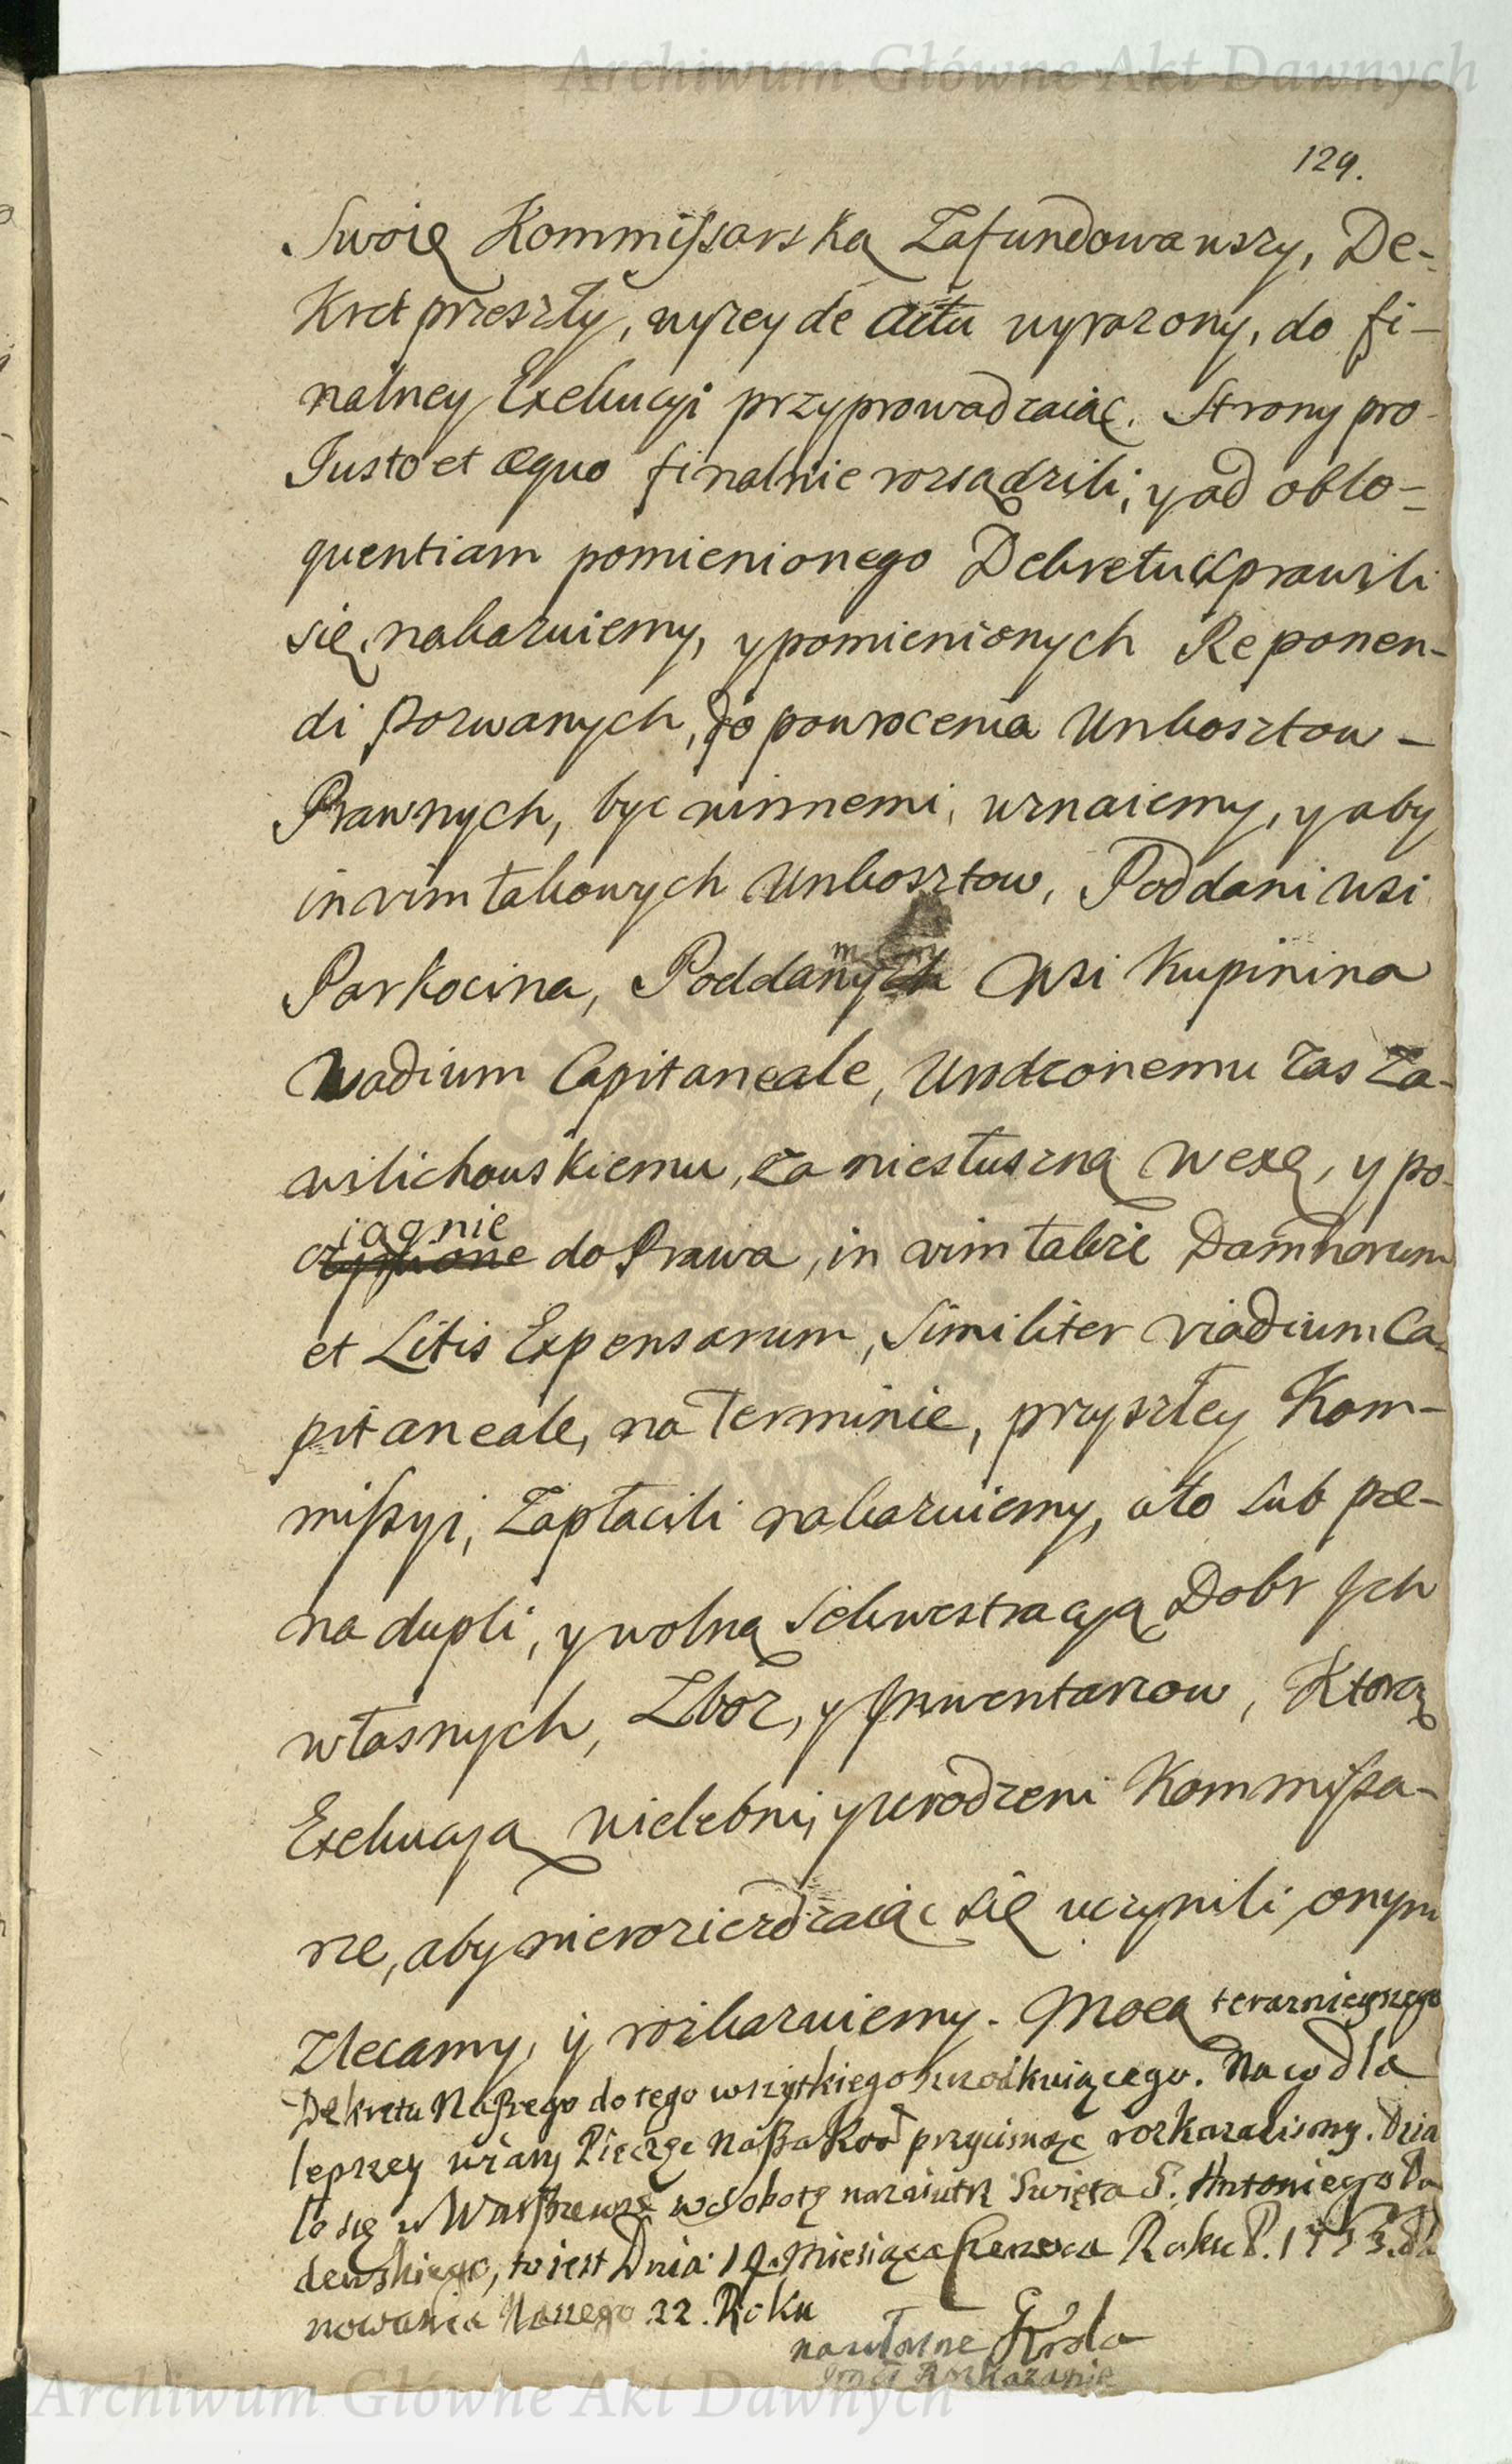 Archiwum Główne Akt Dawnych
129.
Swoię Kommissarską Zafundowawszy, De-
kret przeszły, wyzey de Actu wyrazony, do fi-
nalney Exekucyi przyprowadzaiąc. Strony pro
Justo et æquo finalnie rozsądzili, y ad oblo-
quentiam pomienionego Dekretu sprawili
się, nakazuiemy, y pomienionych Reponen-
di Pozwanych, do powrocenia Unkosztow
Prawnych, byc winnemi, uznaiemy, y aby
in vim takowych Unkosztow, Poddani wsi
Parkocina, Poddanym wsi Kupinina
Wadium Capitaneale, Urodzonemu zas Za-
wilichowskiemu, za niesłuszną wexę, y po-
ciągnie do Prawa, in vim takze Damnorum
et Litis Expensarum, Similiter Vadium Ca-
pitaneale, na Terminie, przyszłey Kom-
missyi, Zapłacili nakazuiemy, a to sub pœ-
na dupli, y wolną Sekwestracyą Dobr Ich
własnych, Zboz, y Inwentarzow, Ktorą
Exekucyą wielebni, y urodzeni Kommissa-
rze, aby nieroziezdzaiąc się uczynili, onym
Zlecamy, y rozkazuiemy. Mocą teraznieyszego
Dekretu Naszego do tego wszystkiego. Na co dla
lepszey wiary Pieczęc Nasza Kor. przycisnąc rozkazalismy. Dzia
ło się w Warszawie w Sobotę nazaiutrz Swięta S. Antoniego Pa
dewskiego, to iest Dnia Miesiąca Czerwca Roku P. 1753. Pa
nowania Naszego 22. Roku
na własne Krola
Jmći Rozkazanie
Archiwum Główne Akt Dawnych